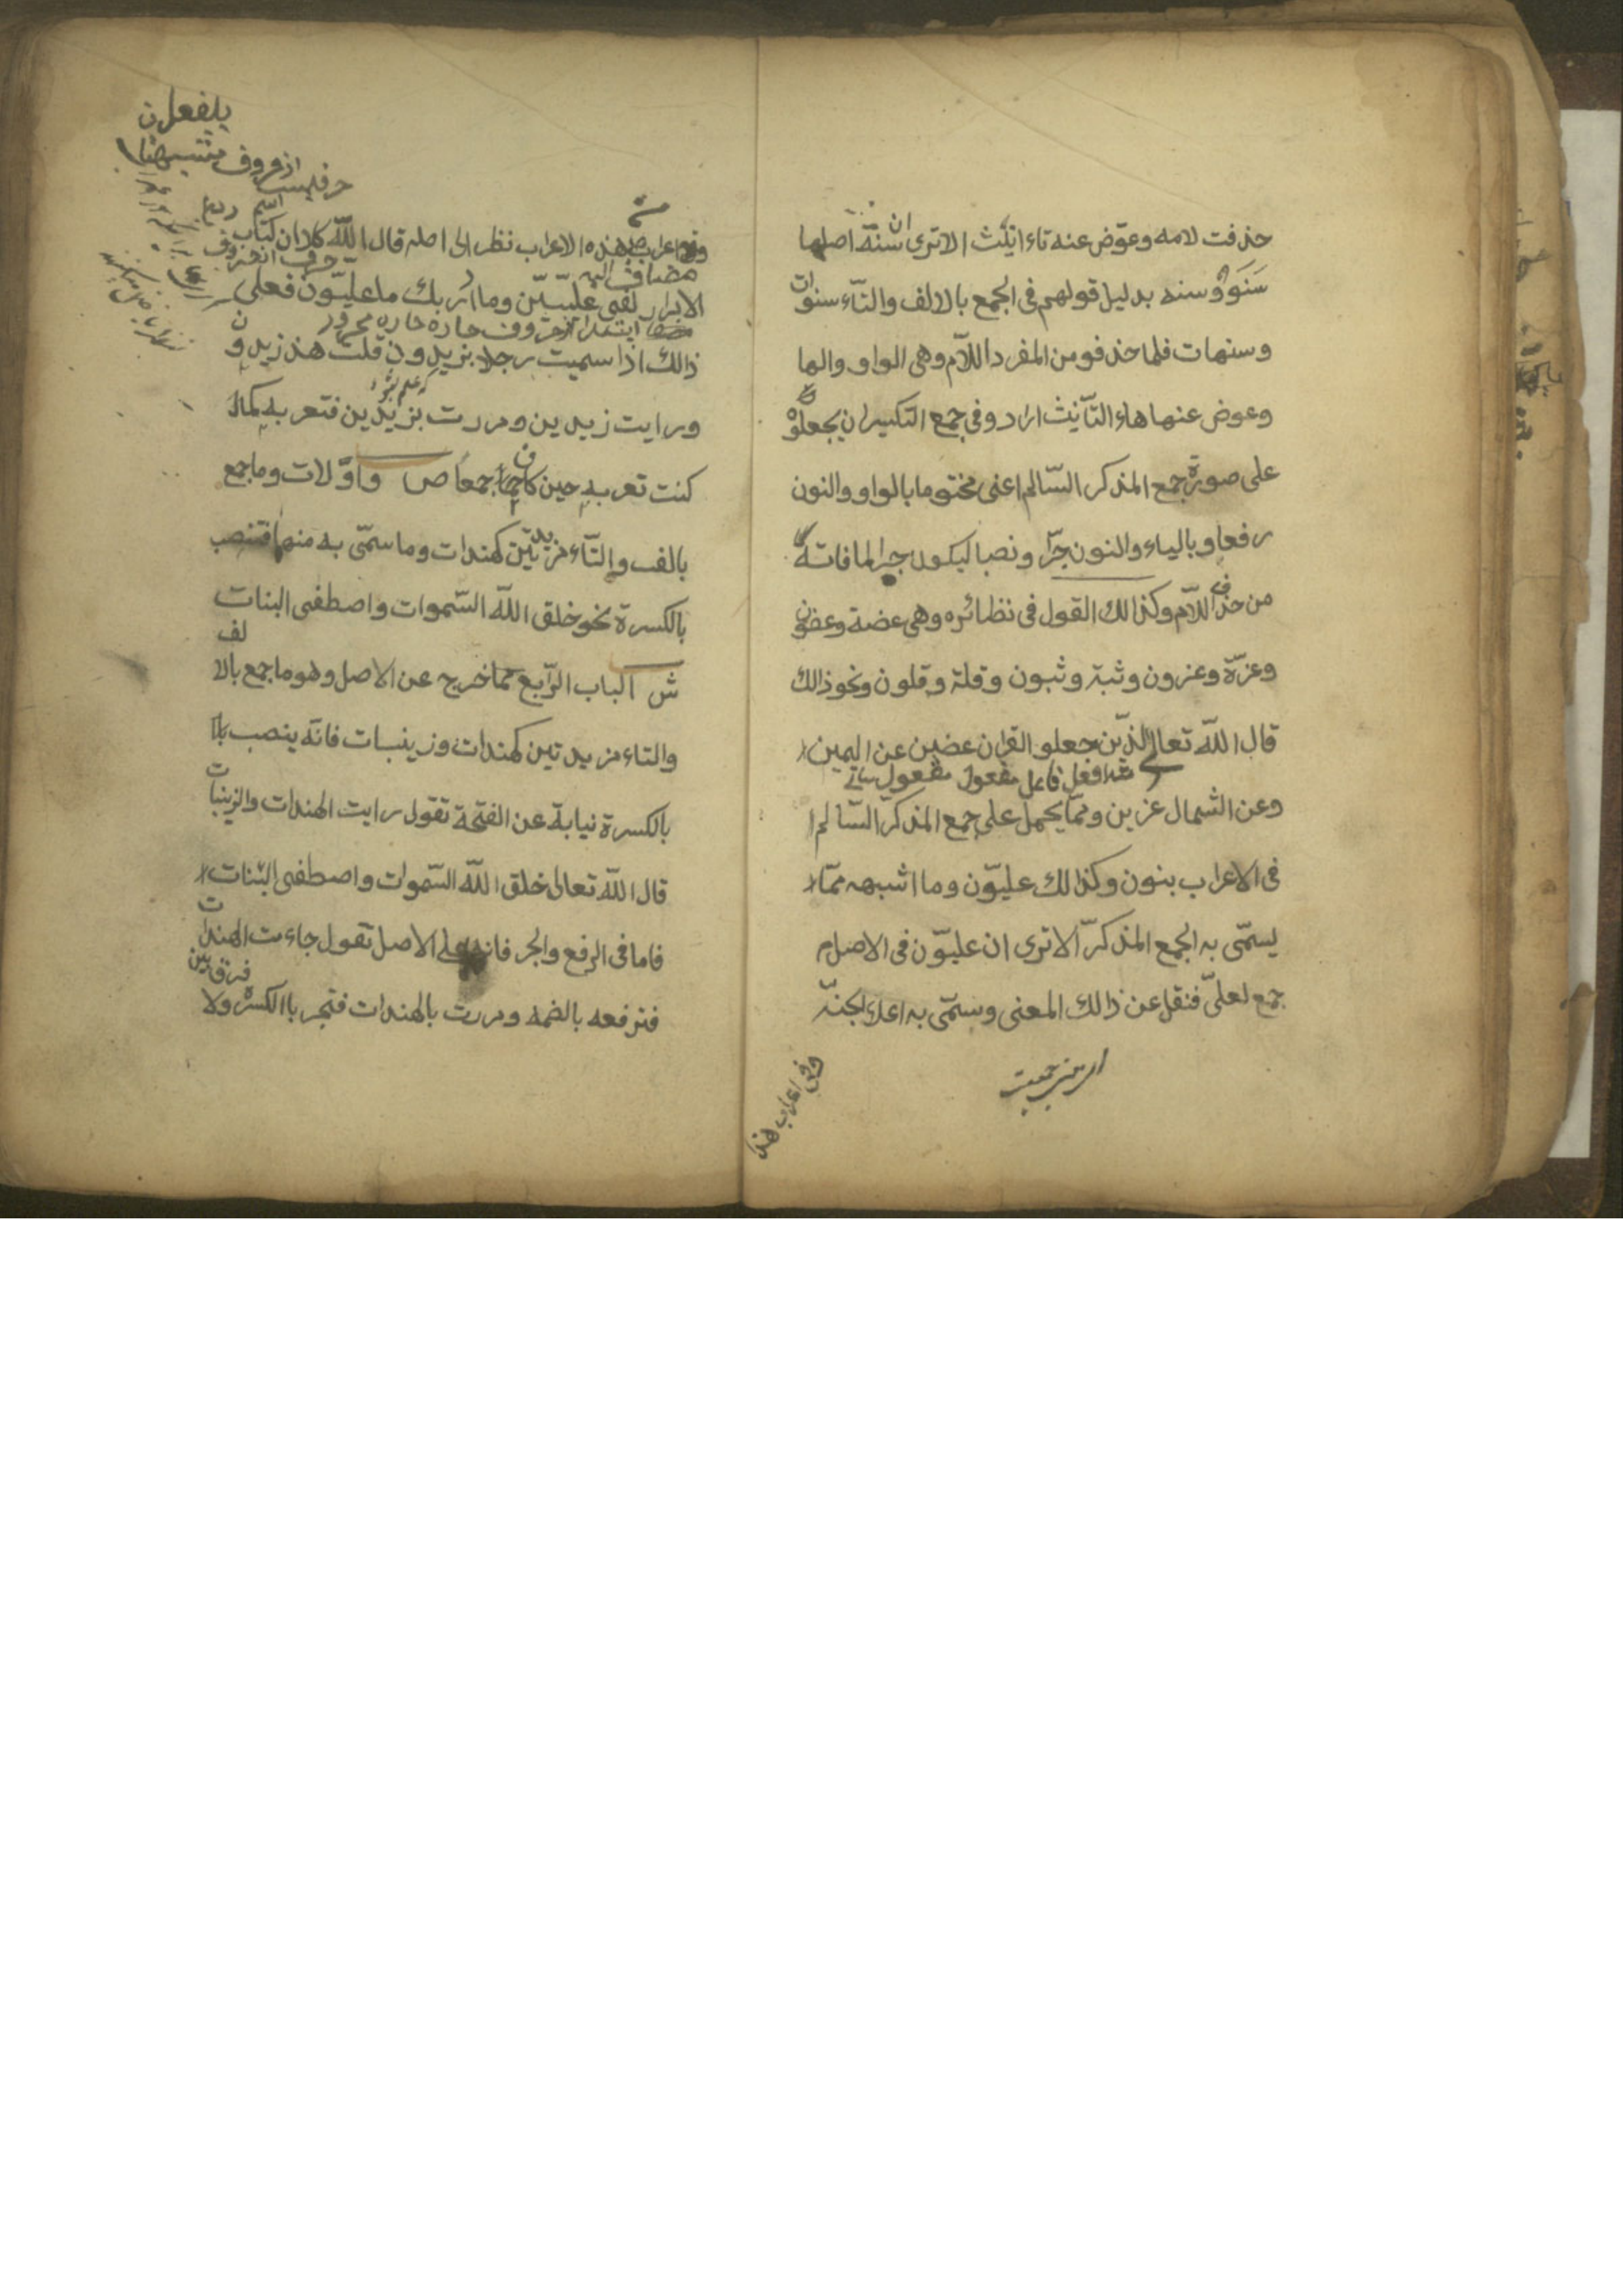 حذفت لامه وعوّض عنه تاء التأنيث الا ترى ان سنة اصلها
سَنَوٌ و سنه بدليل قولهم فى الجمع بالالف والتّاء سنوات
و سنهات فلما حذفو من المفرد اللاّم وهى الواو والها
وعوض عنها هاء التأنيث ارادو فى جمع التكسير ان يجعلوْه
على صورة جمع المذكر السّالم اعنى مختوما بالواو والنون
رفعا وبالياء والنون جرّا ونصبا ليكون جبرا لما فاته
من حذف اللاّم وكذالك القول فى نظائره وهى عضة وعضون
وعزّة وعزون وثبة وثبون وقلة وقلون ونحو ذالك
قال اللّه تعالى الذّين جعلو القران عضين عن اليمين
فعل فاعل مفعول مفعول ثانى
وعن الشمال عزين وممّا يحمل على جمع المذكرّ السّالم
فى الاعراب بنون وكذالك عليوّن وما اشبهه ممّا
يسمّى به الجمع المذكرّ الا ترى ان عليوّن فى الاصل
جمع لعلىّ فنقل عن ذالك المعنى وسمّى به اعلى الجنّة
اعراب هذا
يلفعلن
از حروف
اسم
هذه الاعراب نظرا الى اصله قال اللّه كلا ان كتاب
مضاف اليه
حرف از حروف
الابرار لفى علّيّين وما ادريك ما علّيّون فعلى
ابتدا از حروف جاره جاره مجرور
ذالك اذا سميت رجلا بزيدون قلت هذ زيدون
ورايت زيدين ومررت بزيدين فتعربه كما
كنت تعربه حين كان جمعا ص واوّلات وما جمع
بالف والتّاء مزيدتّين كهندات وما سمّى به منها فتنصب
بالكسرة نحو خلق اللّه السّموات واصطفى البنات
ش الباب الرّابع مما خرج عن الاصل وهو ما جمع بالالف
والتاء مزيدتين كهندات وزينبات فانّه ينصب
بالكسرة نيابة عن الفتحة تقول رايت الهندات والزينبات
قال اللّه تعالى خلق اللّه السّموات واصطفى البنات
فاما فى الرفع والجر فانه على الاصل تقول جاءت الهندات
فرق بين
فترفعه بالضمه ومررت بالهندات فتجر باالكسرة ولا